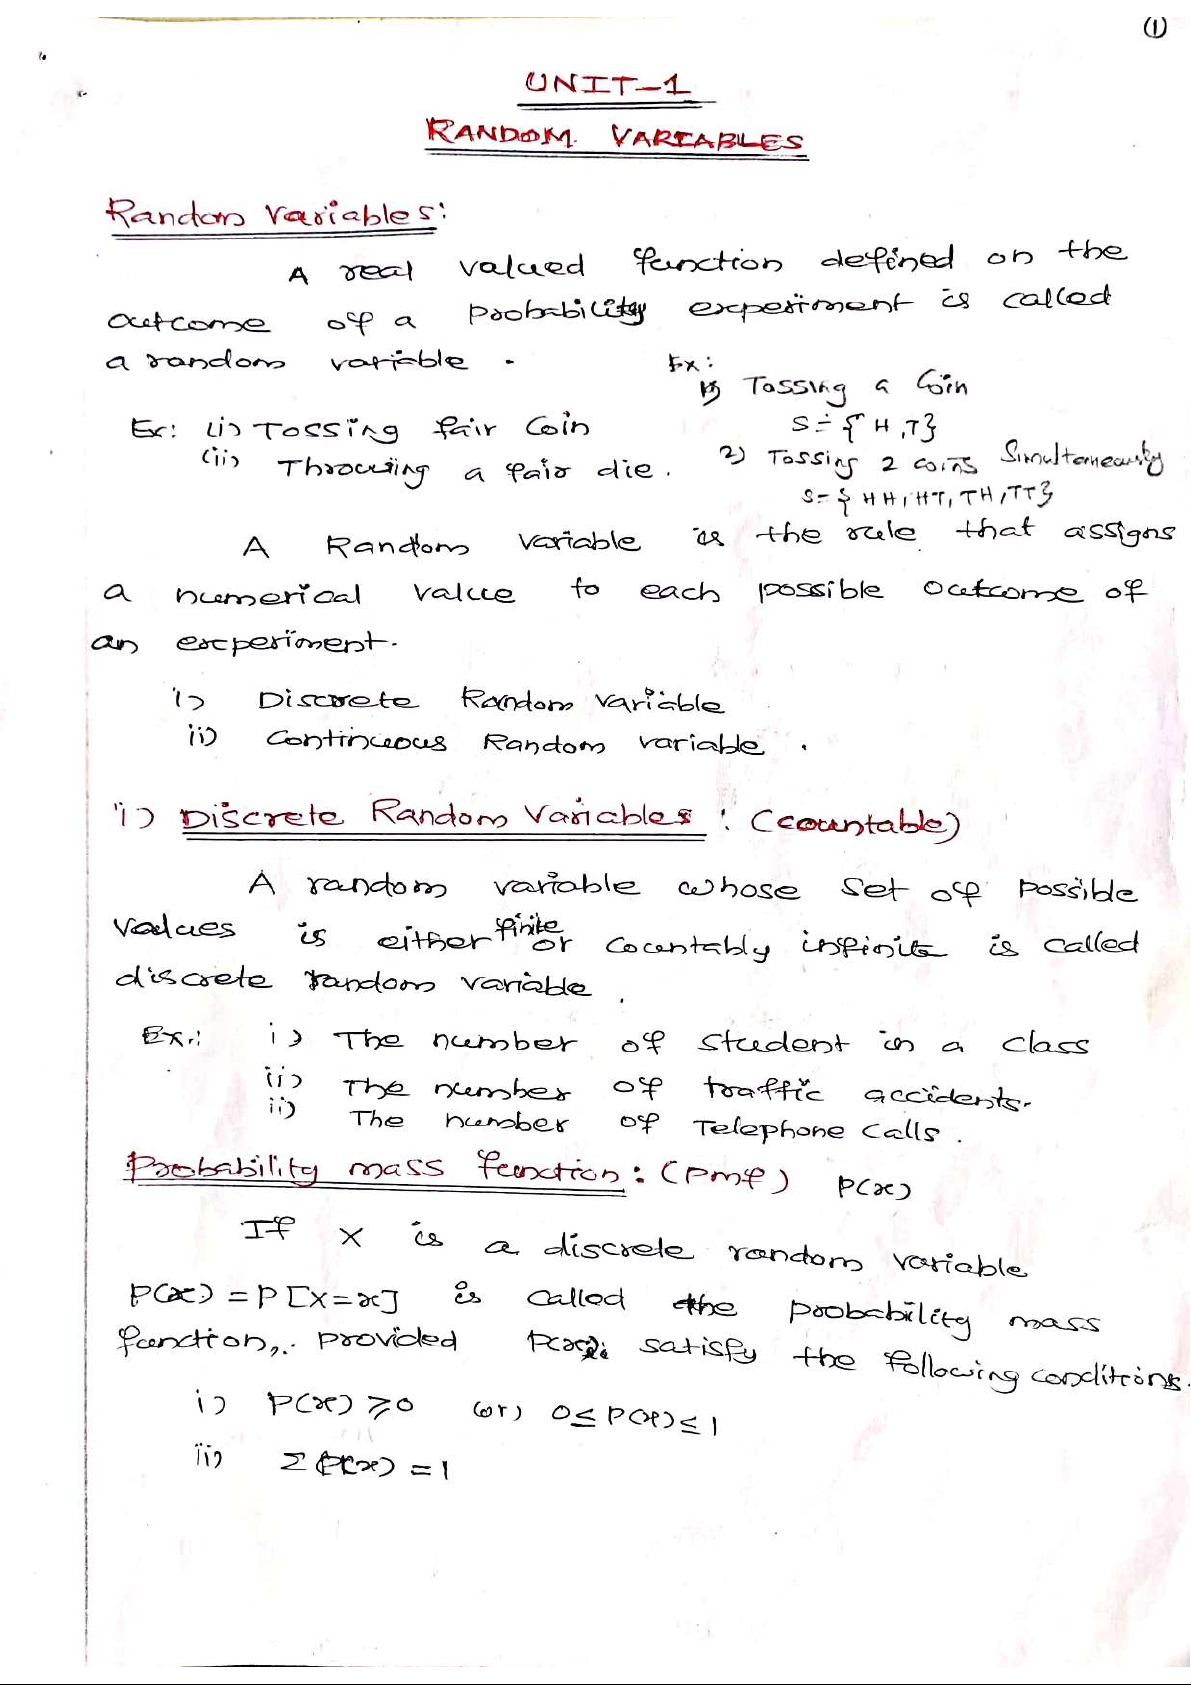 ①
UNIT-1
RANDOM VARIABLES
Random Variables:
A real valued function defined on the
outcome of a probability experiment is called
a random variable.
Ex: (i) Tossing fair Coin
(ii) Throwing a fair die.
Ex:
1) Tossing a Coin
S = { H, T}
2) Tossing 2 coins Simultaneously
S = { HH, HT, TH, TT}
A Random Variable is the rule that assigns
a numerical value to each possible outcome of
an experiment.
i) Discrete Random Variable
ii) Continuous Random variable.
i) Discrete Random Variables: (countable)
A random variable whose set of possible
values is either finite or countably infinite is called
discrete random variable.
Ex.: i) The number of student in a class
ii) The number of traffic accidents.
ii) The number of Telephone Calls.
Probability mass function: (pmf) P(x)
If X is a discrete random variable
P(x) = P[X=x] is called the probability mass
function, provided satisfy the following conditions.
i) P(x) ⩾ 0 (or) 0 ≤ P(x) ≤ 1
ii) Σ P(x) = 1